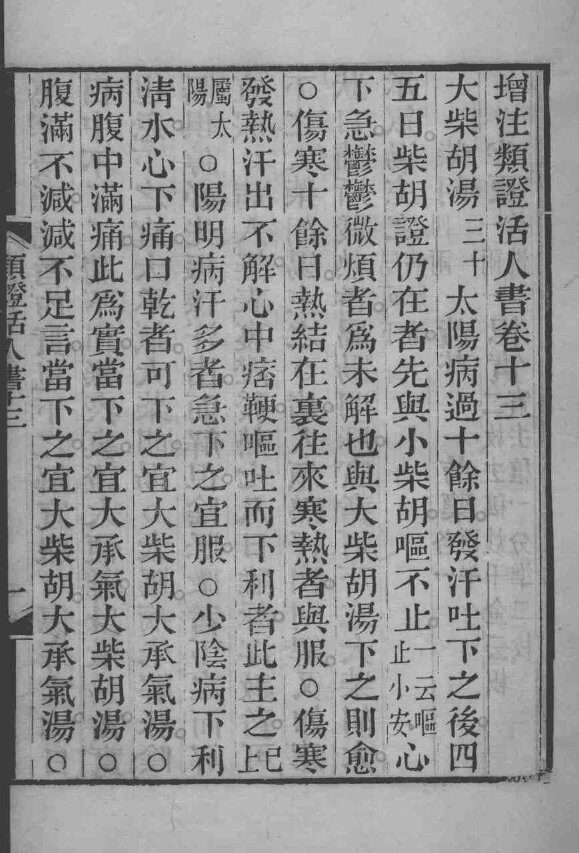 增注類證活人書卷十三
大柴胡湯三十太陽病過十餘日發汗吐下之後四
五日柴胡證仍在者先與小柴胡嘔不止一云嘔止小安心
下急鬱鬱微煩者爲未解也與大柴胡湯下之則愈
○傷寒十餘日熱結在裏往來寒熱者與服○傷寒
發熱汗出不解心中痞鞕嘔吐而下利者此主之已上
屬太陽○陽明病汗多者急下之宜服○少陰病下利
淸水心下痛口乾者可下之宜大柴胡大承氣湯○
病腹中滿痛此爲實當下之宜大承氣大柴胡湯○
腹滿不減減不足言當下之宜大柴胡大承氣湯○
類證活人書十三
一